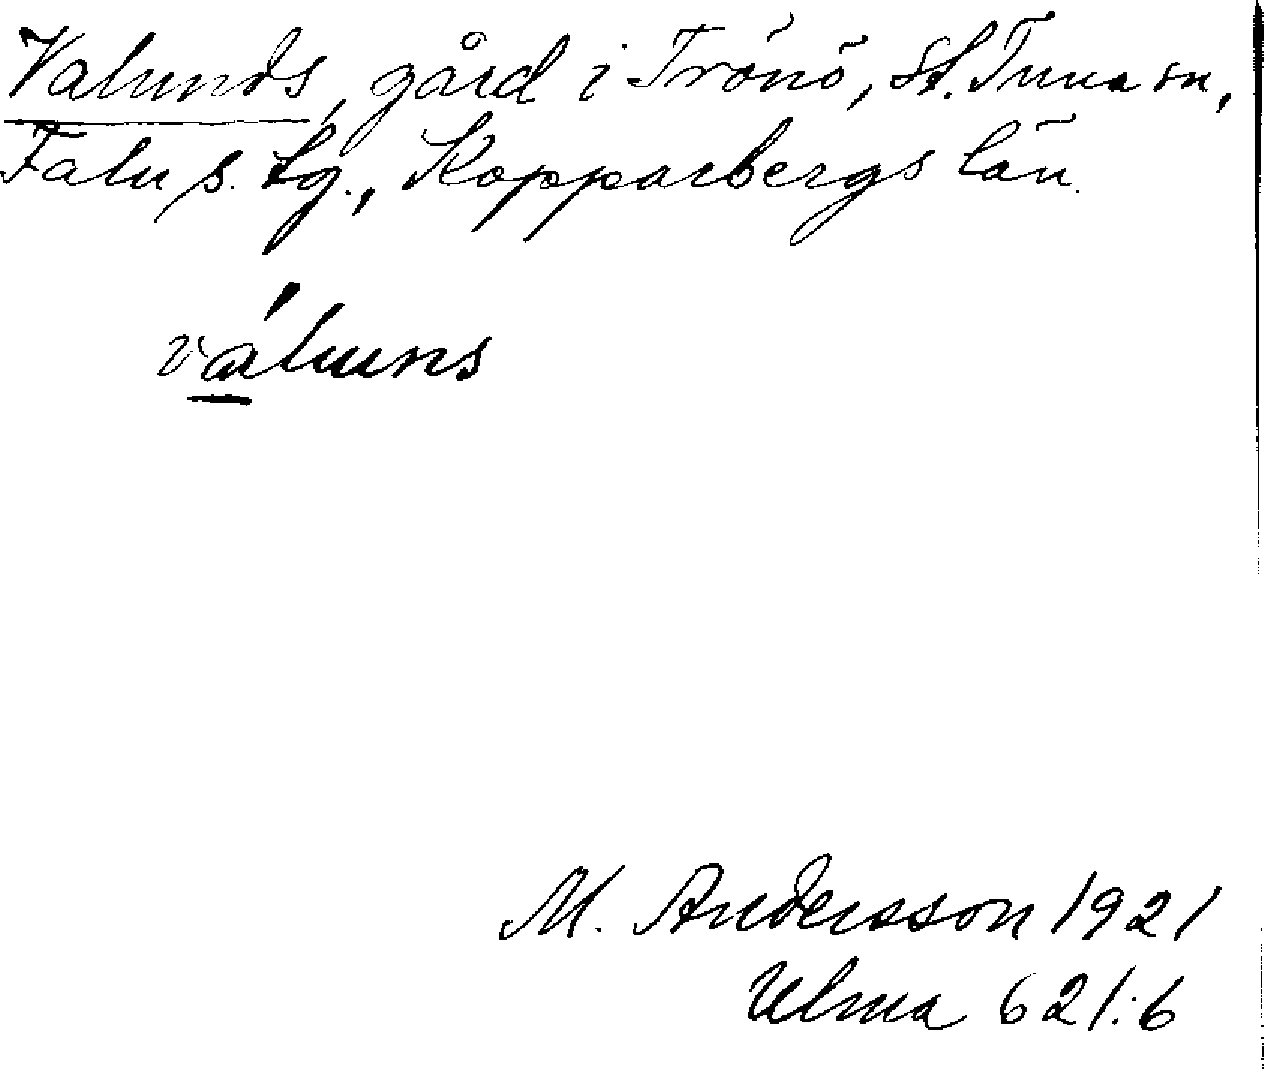 Valunds, gård i Trönö, St. Tuna sn,
Falu s. tg., Kopparbergs län.
váluns
M. Andersson 1921
Ulma 621:6